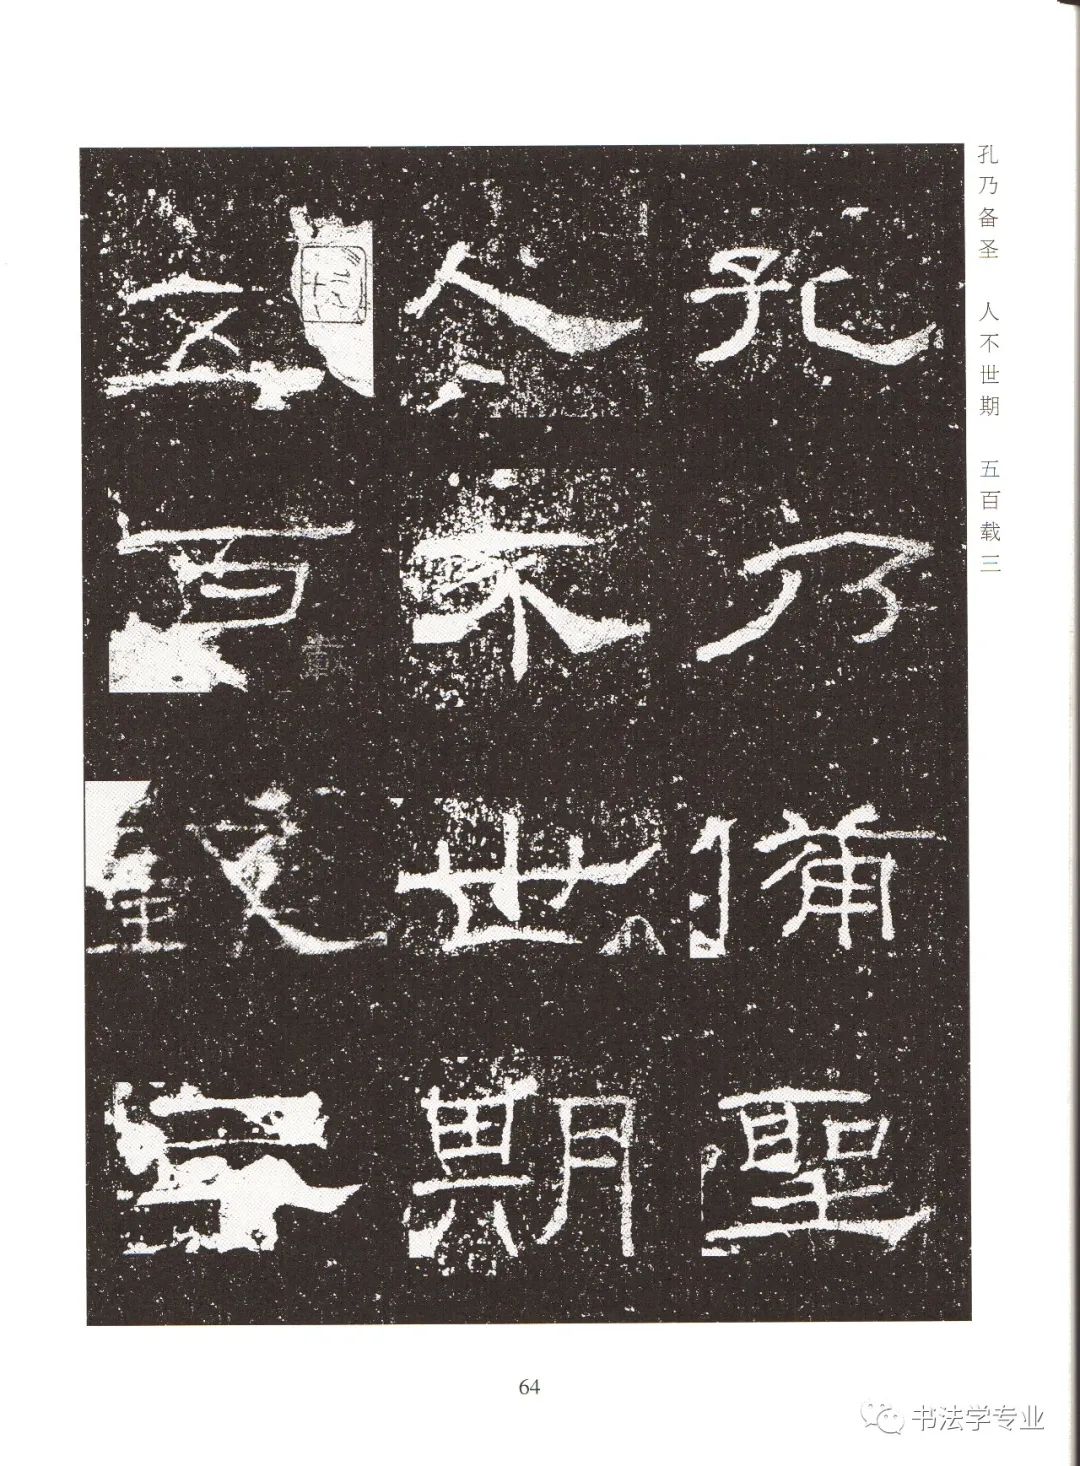 孔乃备圣 人不世期 五百载三
孔乃備聖
人不世期
五百載三
64
书法学专业